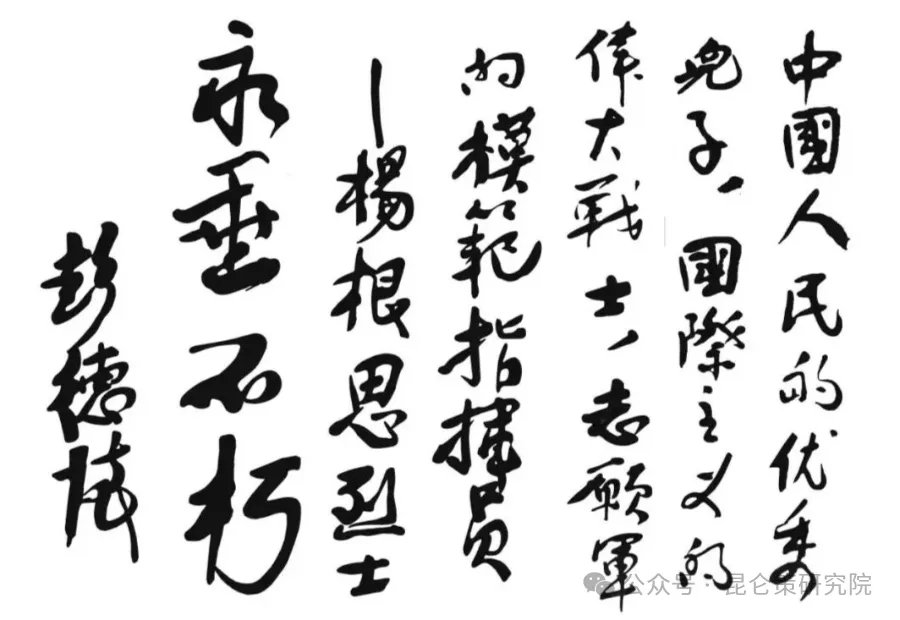 中國人民的优秀
兒子、國際主义的
偉大戰士、志願軍
的模範指揮員
—楊根思烈士
永垂不朽
彭德懷
公众号·昆仑策研究院